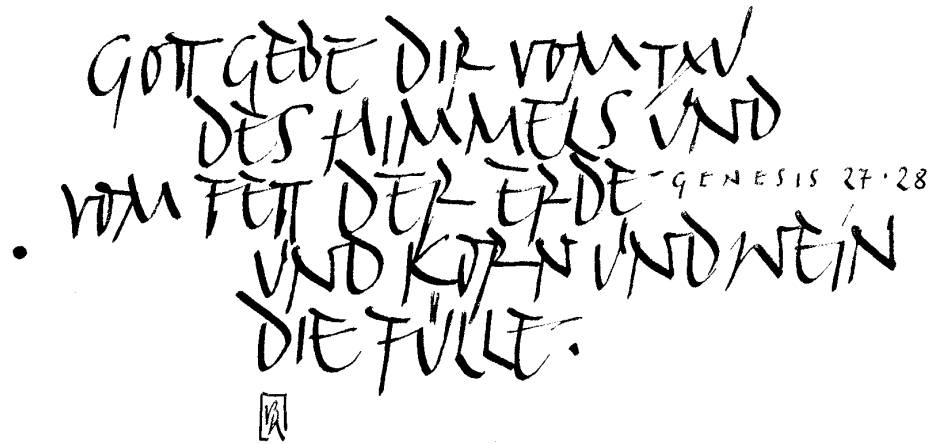 GOTT GEBE DIR VOM TAU
DES HIMMELS UND
VOM FETT DER ERDE - GENESIS 27·28
UND KORN UND WEIN
DIE FÜLLE.